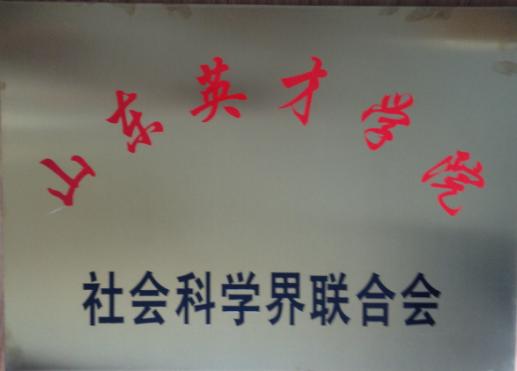 山东英才学院
社会科学界联合会